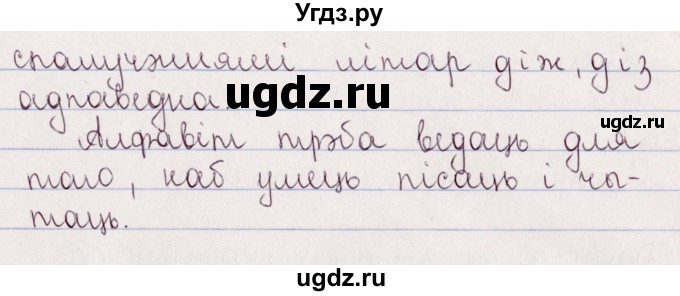 Угдз.ру
спалучэннямі літар д і ж, д і з
адпаведна.
ugdz.ru
Алфавіт трэба ведаць для
таго, каб умець пісаць і чы-
таць.
ugdz.ru